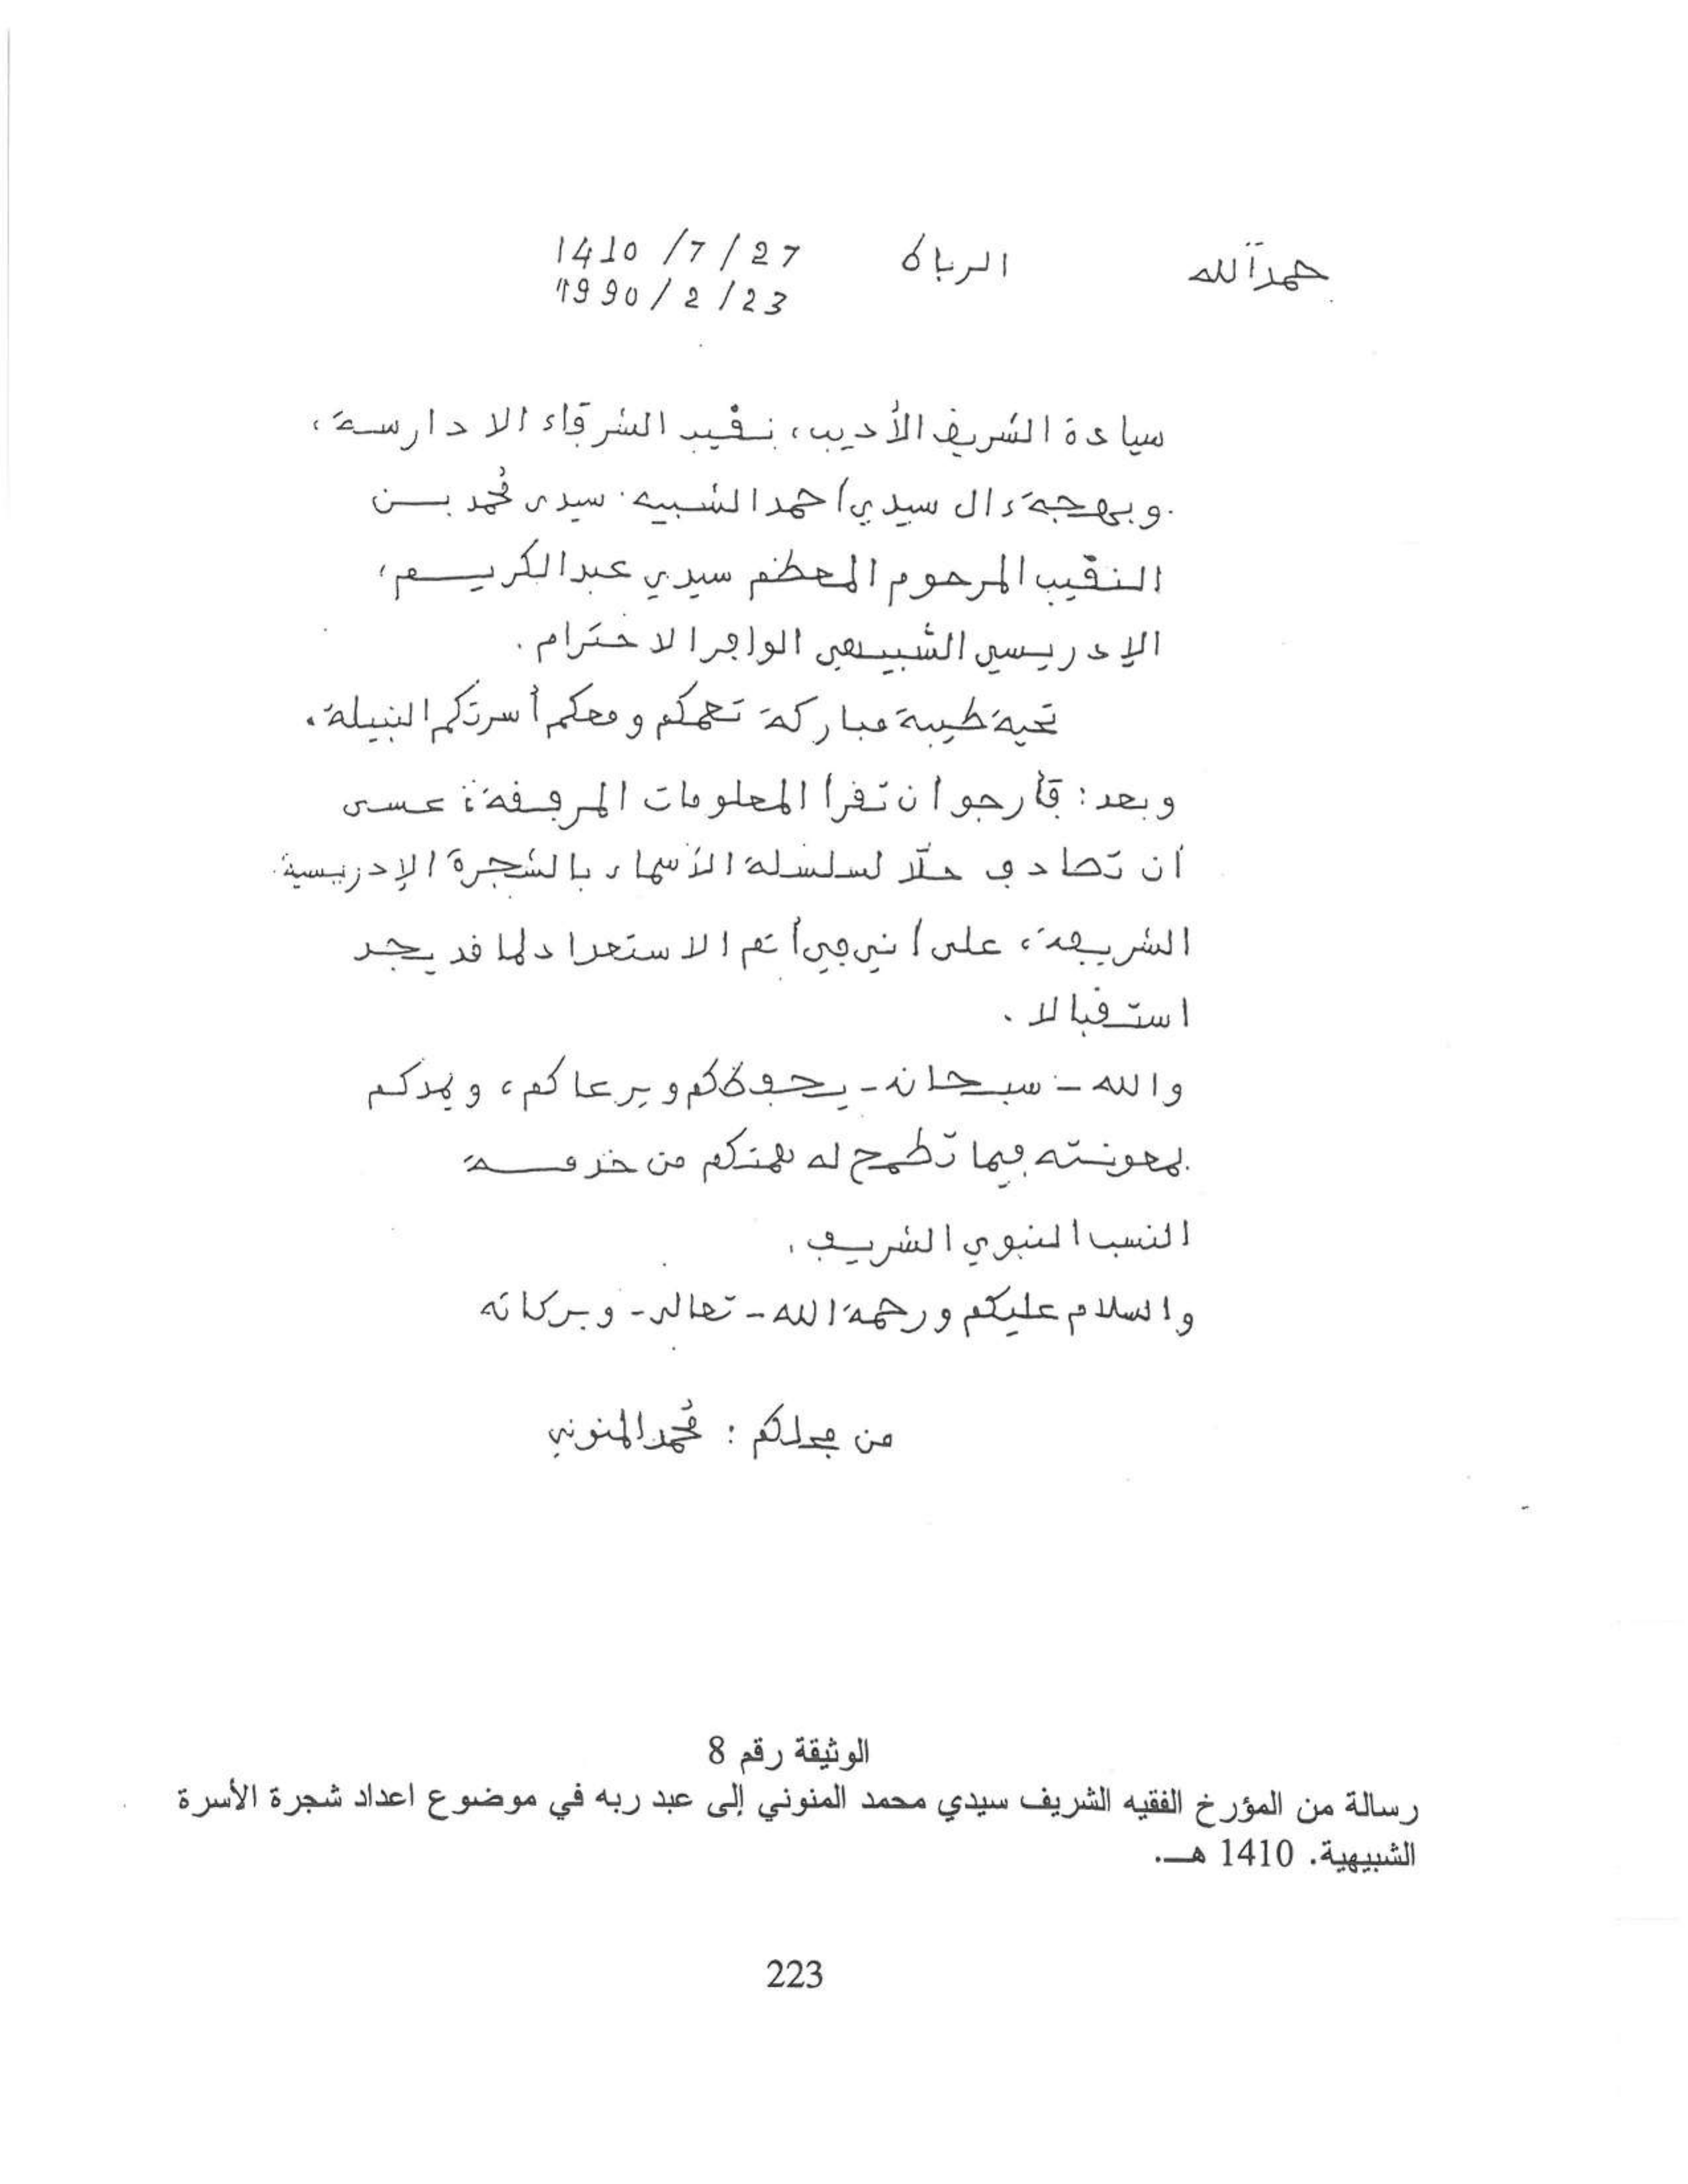 حمدا لله الرباط 27/7/1410
23/2/1990
سيادة الشريف الأديب، نقيب الشرفاء الادارسة،
وبهجة ءال سيدي احمد الشبيه. سيدى محمد بــن
النقيب المرحوم المعظم سيدي عبد الكريــم،
الإدريسي الشبيهي الوافر الاحترام.
تحية طيبة مباركة تعمكم ومعكم أسرتكم النبيلة.
وبعد: فأرجو ان تقرأ المعلومات المرفقة؛ عسى
أن تصادف حلّا لسلسلة الأسماء بالشجرة الإدريسية
الشريفة، على انني في أتم الاستعداد لما قد يجد
استقبالا.
والله - سبحانه - يحفظكم ويرعاكم، ويمدكم
بمعونته فيما تطمح له همتكم من خدمــة
النسب النبوي الشريف.
والسلام عليكم ورحمة الله - تعالى - وبركاته
من مجلكم: محمد المنوني
الوثيقة رقم 8
رسالة من المؤرخ الفقيه الشريف سيدي محمد المنوني إلى عبد ربه في موضوع اعداد شجرة الأسرة
الشبيهية. 1410 هــ.
223